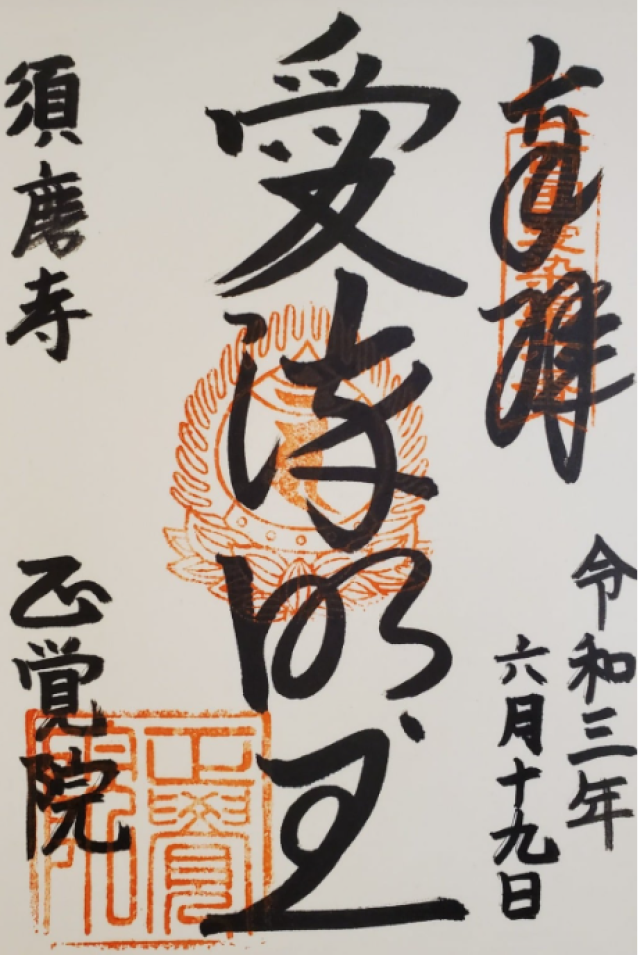 奉拝
令和三年
六月十九日
愛染明王
須磨寺
正覚院
正覺院